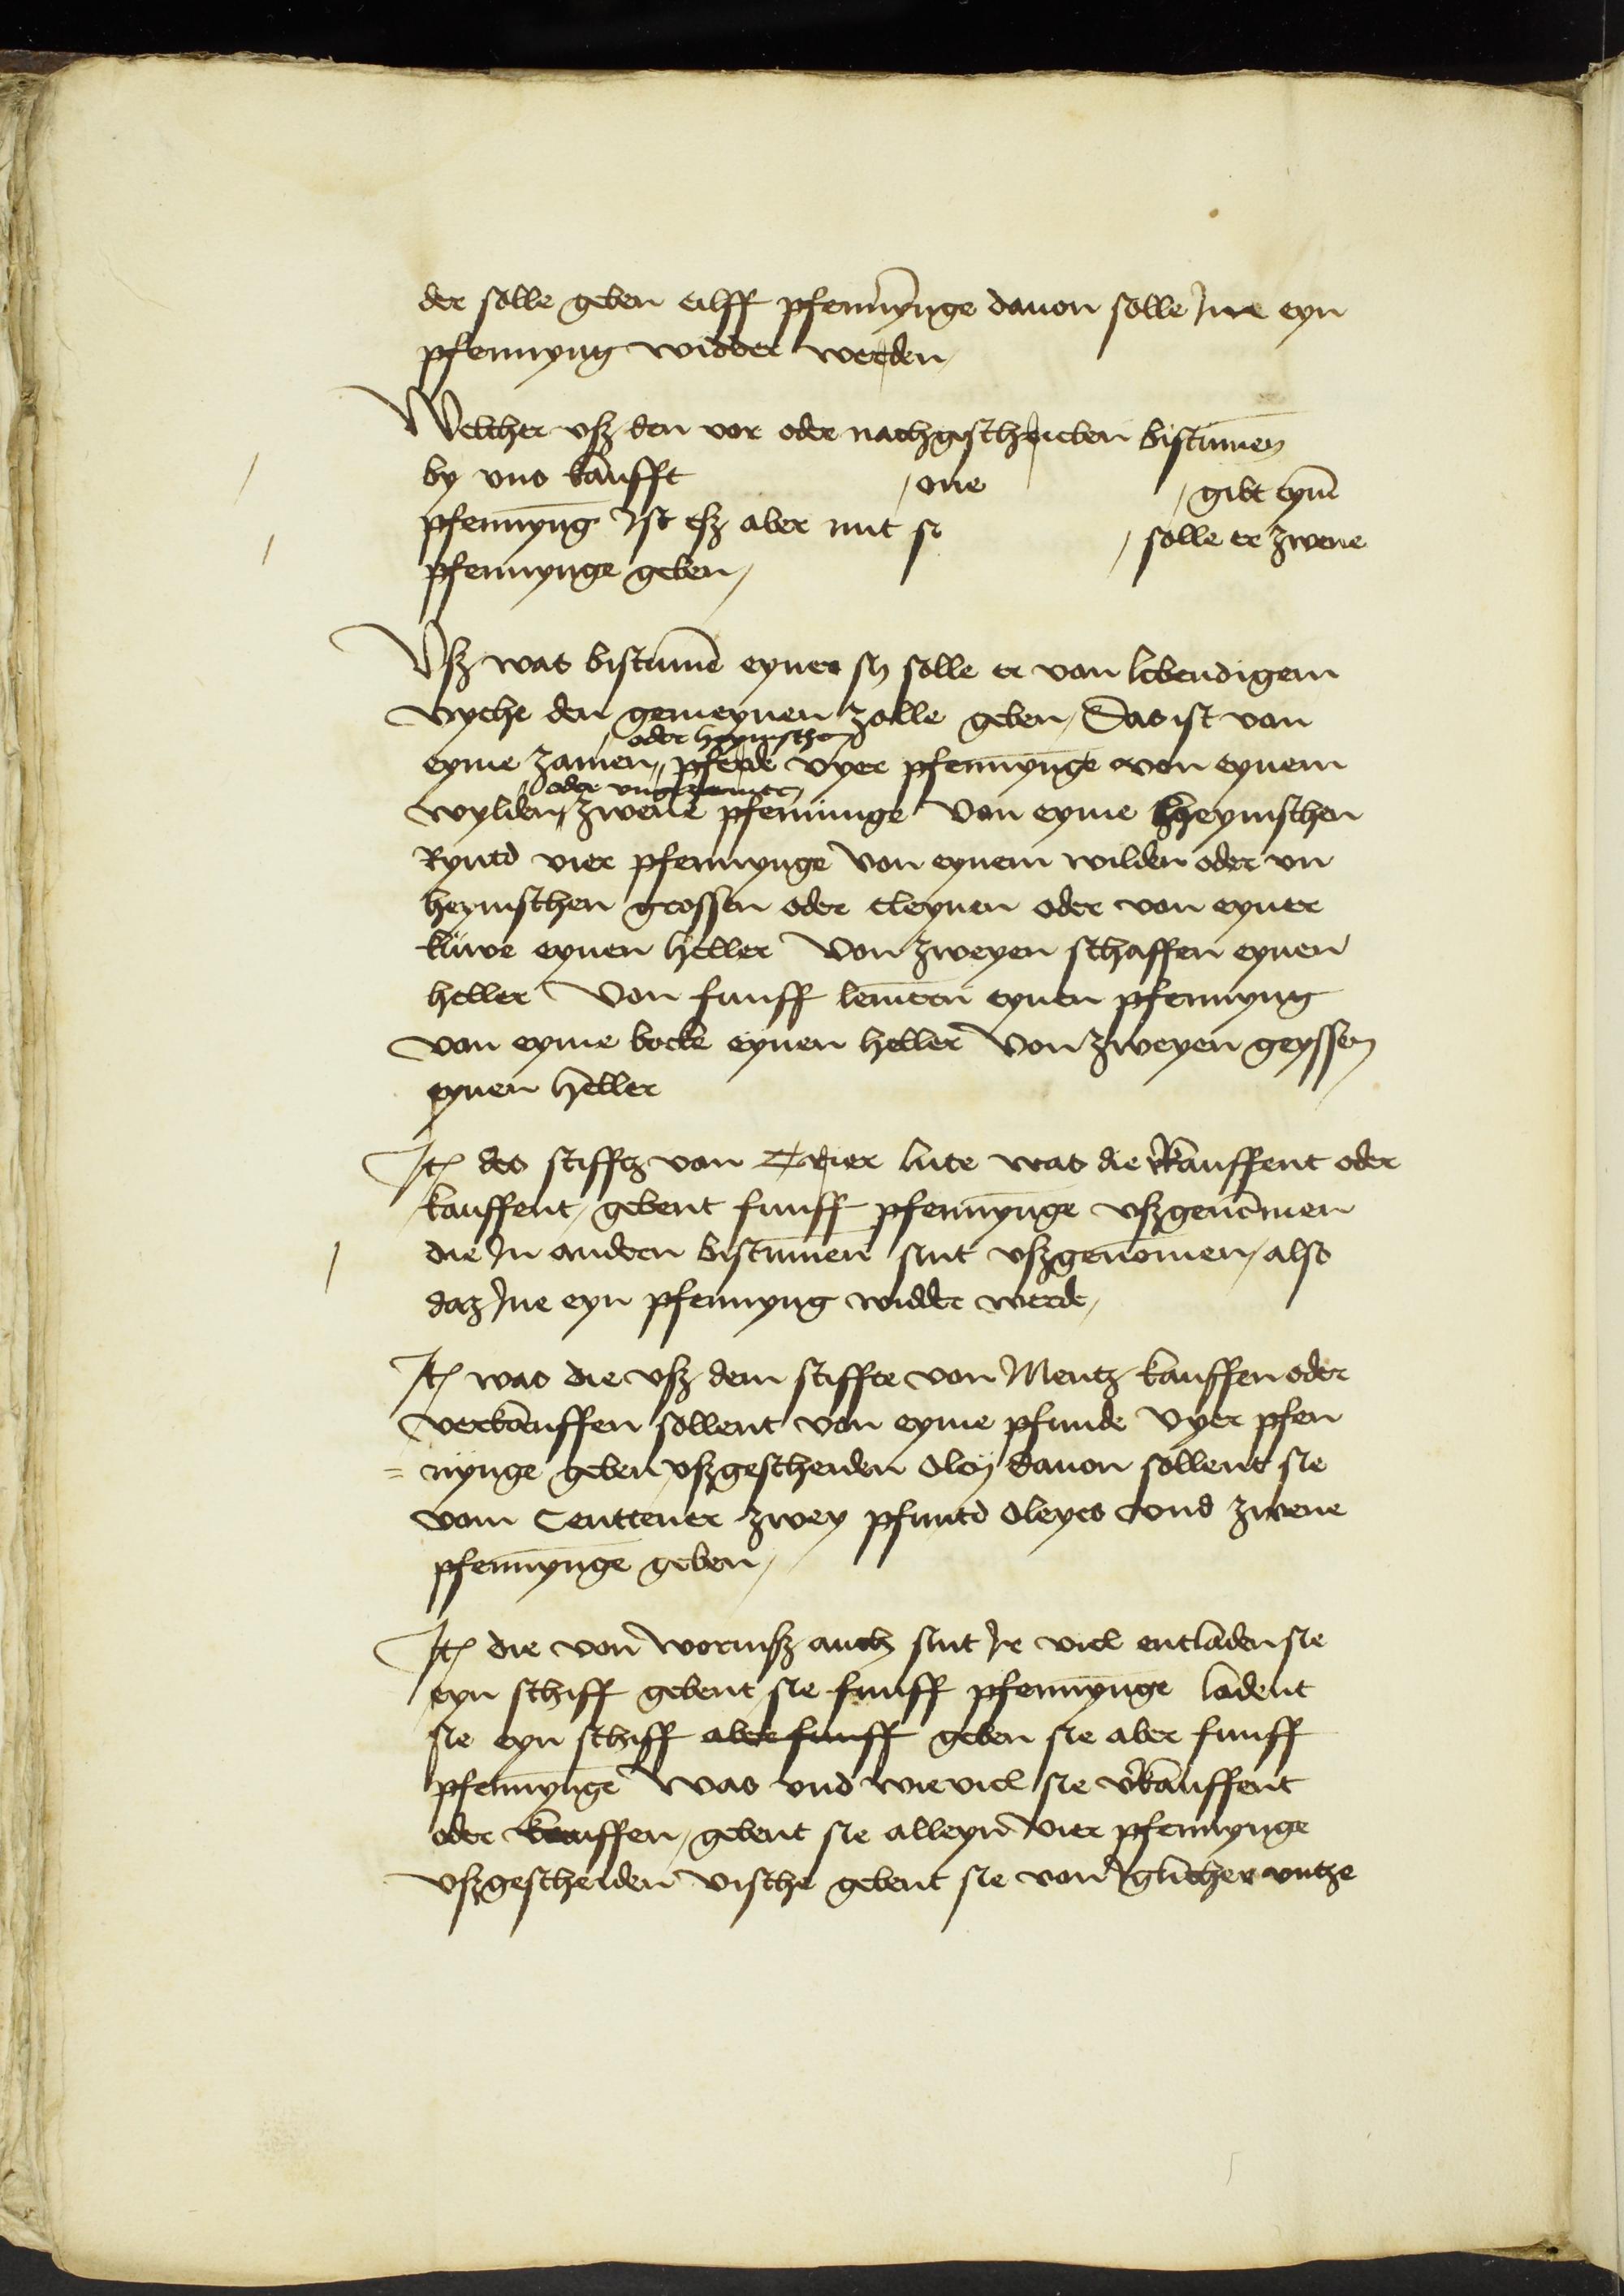 der solle geben eilff pfennynge dauon solle Ime eyn
pfennyng widder werden,
Welcher vsz den vor oder nachgeschrieben bistumen
by vns kaufft , one , gibt eyn
pfennyng Ist esz aber mit si , solle er zwene
pfennynge geben,
Vsz was bistume eyner sy solle er von lebendigem
vyche den gemeynen zolle geben, Das ist von
oder heymschen
eyme zamen, pferde vyer pfennynge von eynem
oder vngezamer
wylden, zwene pfennige Von eyme heymschen
Ryntd vier pfennynge von eynem wilden oder vn
heymschen grossen oder cleynen oder von eyner
kuwe eynen heller Von zweyen schaffen eynen
heller Von funff lemern eynen pfennyng
von eyme bocke eynen heller Von zweyen geyssen
eynen heller
It des stifftz von Trier lute was die v'kauffent oder
kauffent, gebent funff pfennynge vszgenomen
die In andern bistumen sint vszgenomen, also
daz Ine eyn pfennyng widder werde,
It was die vsz dem stiffte von Mentz kauffen oder
verkauffen sollent von eyme pfunde vyer pfen
= nynge geben, vszgescheiden Oley dauon sollent sie
vom Centtener zwey pfuntd Oleyes vnd zwene
pfennynge geben,
It die von wormsz auch sint Ir viel entladen sie
eyn schiff gebent sie funff pfennynge ladent
sie eyn schiff aber funff geben sie aber funff
pfennynge Was vnd wieviel sie v'kauffent
oder kauffen, gebent sie alleyn vier pfennynge
vszgescheiden vische gebent sie von Iglicher vntze